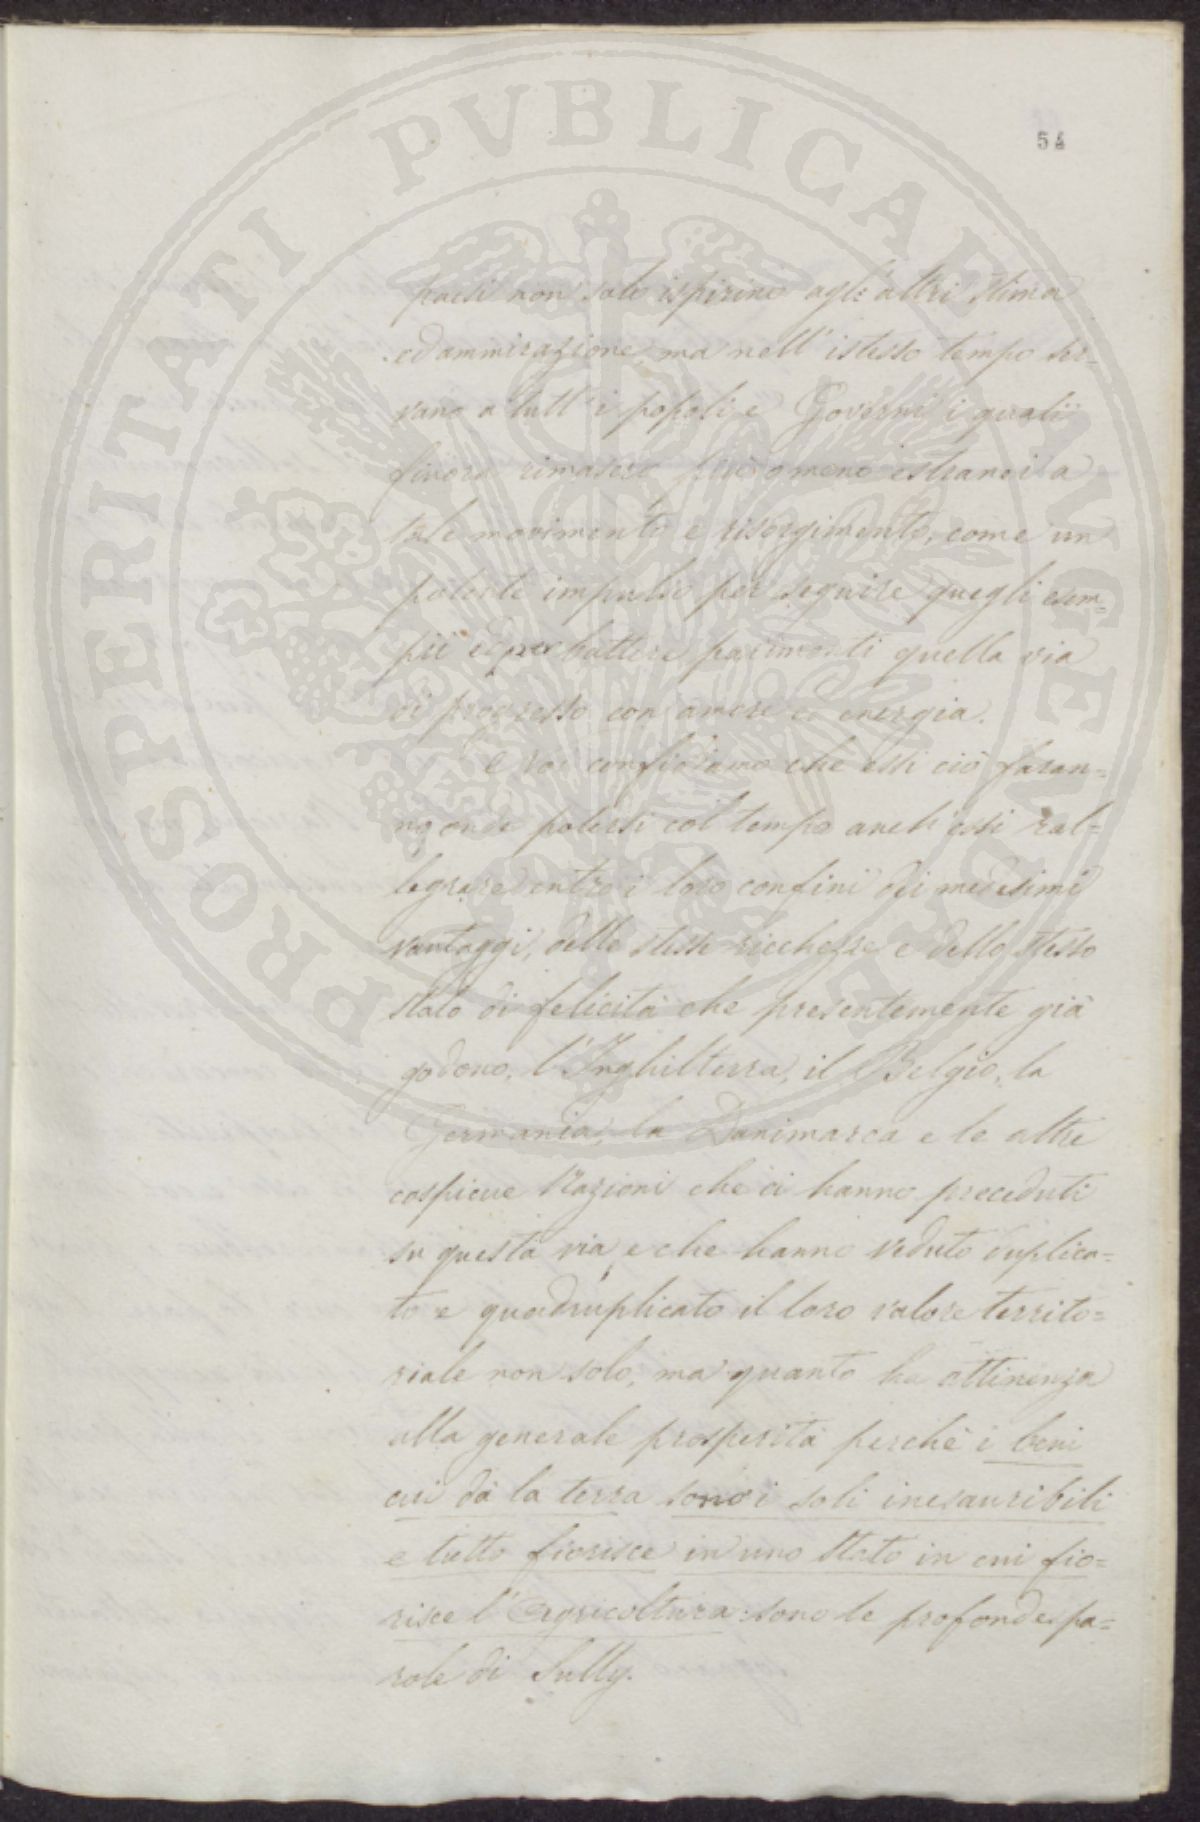 54
paesi non solo ispirino agli altri stima
ed ammirazione, ma nell' istesso tempo ser=
vano a tutt' i popoli e Governi, i quali
finora rimasero più o meno estranei a
tale movimento e risorgimento, come un
potente impulso per seguire quegli esem=
pii e per battere parimenti quella via
di progresso con amore ed energia.
E noi confidiamo che essi ciò faran=
no onde potersi col tempo anch'essi ral=
legrare entro i loro confini dei medesimi
vantaggi, delle stesse ricchezze e dello stesso
stato di felicità che presentemente già
godono, l'Inghilterra, il Belgio, la
Germania, la Danimarca e le altre
cospicue Nazioni che ci hanno preceduti
su questa via, e che hanno veduto duplica=
to e quadruplicato il loro valore territo=
riale non solo, ma quanto ha attinenza
alla generale prosperità perchè i beni
cui dà la terra sono i soli inesauribili
e tutto fiorisce in uno stato in cui fio=
risce l'Agricoltura: sono le profonde pa=
role di Sully.
PROSPERITATI PVBLICAE AVGENDAE